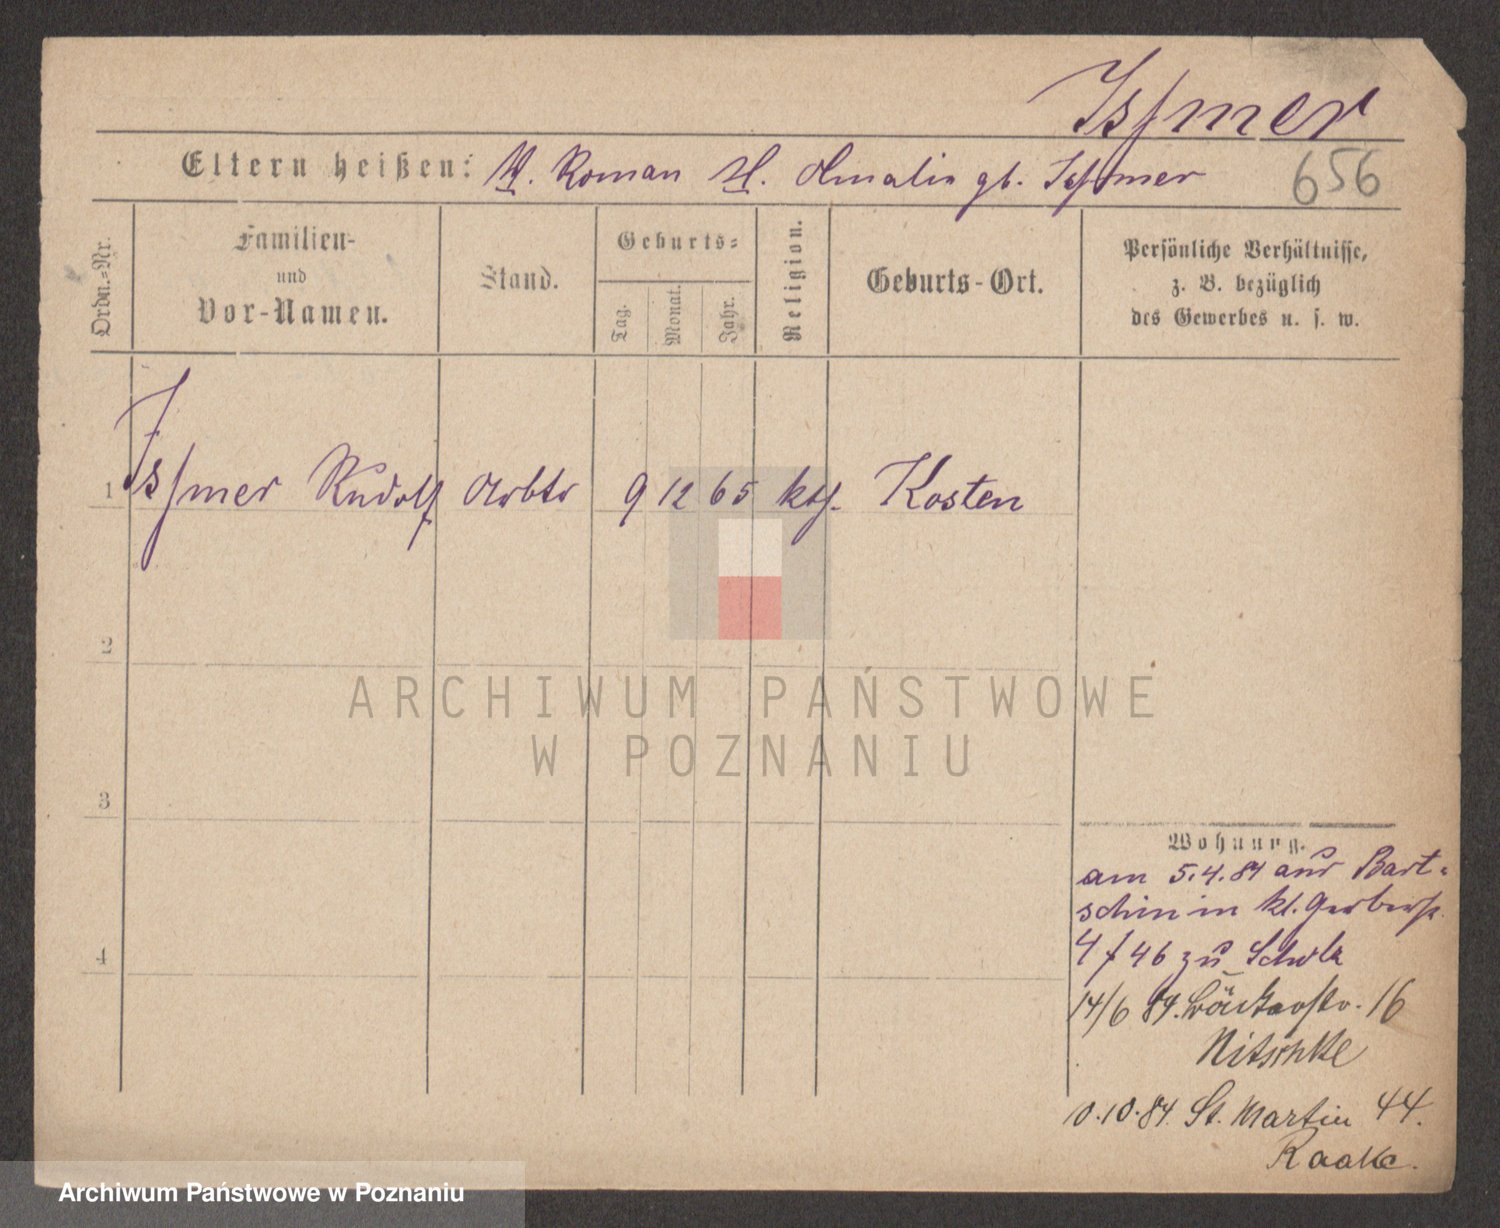 Issmer
Eltern heißen: V. Roman M. Amalie gb. Issmer
656
Ordn.-Nr.
Familien-
und
Vor-Namen.
Stand.
Geburts-
Tag.
Monat.
Jahr.
Religion.
Geburts-Ort.
Persönliche Verhältnisse,
z. B. bezüglich
des Gewerbes u. s. w.
1 Issmer Rudolf Arbtr 9 12 65 kth. Kosten
2
ARCHIWUM PAŃSTWOWE
W POZNANIU
3
Wohnung.
am 5.4.84 aus Bart-
schin in kl. Gerberst.
4
4/46 zu Scholz
14/6 84. Bäckerstr. 16
Nitschke
10.84 St. Martin 44.
Raake.
Archiwum Państwowe w Poznaniu